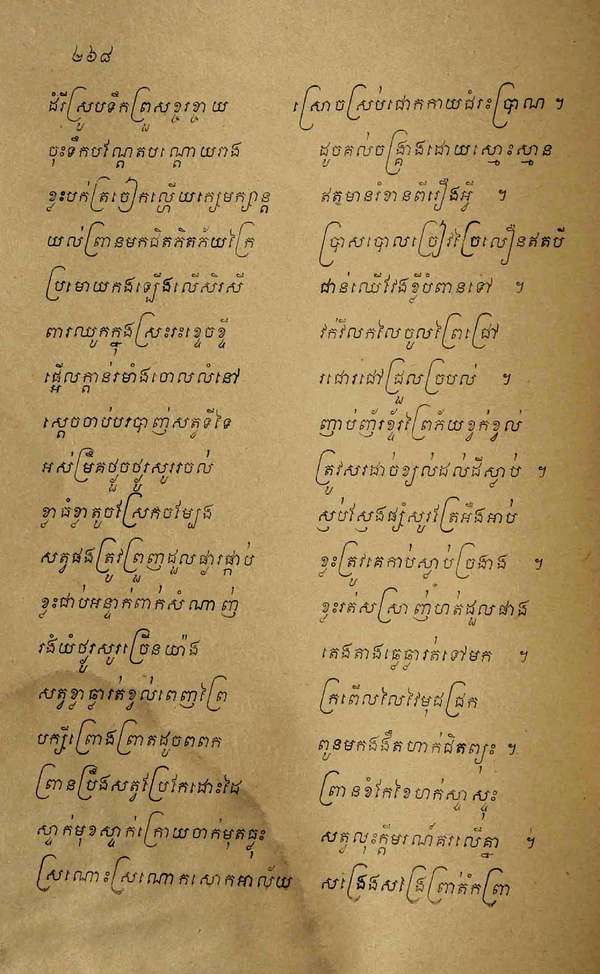 ២៦៨
ដំរីស្រូបទឹកព្រួសខ្ទរខ្ទាយ ស្រោចស្រប់ជោកកាយជំរះប្រាណ ។
ចុះទឹកបណ្តែតបណ្តោយរាង ដូចគល់ចង្គ្រាងដោយស្មោះស្មាន
ខ្លះបក់ត្រចៀកល្ហើយក្សេមក្សាន្ត ឥតមានរំខានពីរឿងអ្វី ។
យល់ព្រានមកជិតភិតភ័យក្រៃ ប្រាសបោលជ្រៀវជ្រៃលឿនឥតបី
ប្រមោយកងឡើងលើសិរសី ជាន់ឈើវែងខ្លីបំពានទៅ ។
ពារឈូកក្នុងស្រះរះខ្ទេចខ្ទី វក់វីលកលៃចូលព្រៃជ្រៅ
ផ្អើលក្តាន់រមាំងចោលលំនៅ រជោរជៅជ្រួលច្របល់ ។
ស្តេចចាប់បរបាញ់សត្វទីទៃ ញាប់ញ័រខ្ទ័រព្រៃភ័យខ្វក់ខ្វល់
អស់ម្រឹគថ្លូចថ្លូរសូររចល់ ត្រូវសរដាច់ខ្យល់ដល់ដីស្លាប់ ។
ខ្លាធំខ្លាតូចស្រែកចម្បែង ស្ញប់ស្ញែងផ្សំសូរត្រែអឺងអាប់
សត្វផងត្រូវព្រួញដួលផ្ងារផ្កាប់ ខ្លះត្រូវគេកាប់ស្លាប់ច្រងាង ។
ខ្លះជាប់អន្ទាក់ពាក់សំណាញ់ ខ្លះរត់សស្រាញ់ហត់ដួលផាង
រងំយំថ្ងូរសូរច្រើនយ៉ាង តេងតាងឆ្លេឆ្លារត់ទៅមក ។
សត្វខ្លាឆ្លារត់ខ្វល់ពេញព្រៃ ក្រពើលលៃវៃមុជជ្រក
បក្សីព្រោងព្រាតដូចពពក ពួនមកងងឹតហាក់ជិតព្យុះ ។
ព្រានប្រឹងសត្វប្រែកដោះដៃ ព្រានខំកែខៃហក់ស្ទាស្ទុះ
ស្ទាក់មុខស្ទាក់ក្រោយចាក់មុតធ្លុះ សត្វលុះក្តីមរណ៍គរលើគ្នា ។
ស្រណោះស្រណោកសោកអាល័យ សង្រែងសង្រៃព្រាត់គំព្រា